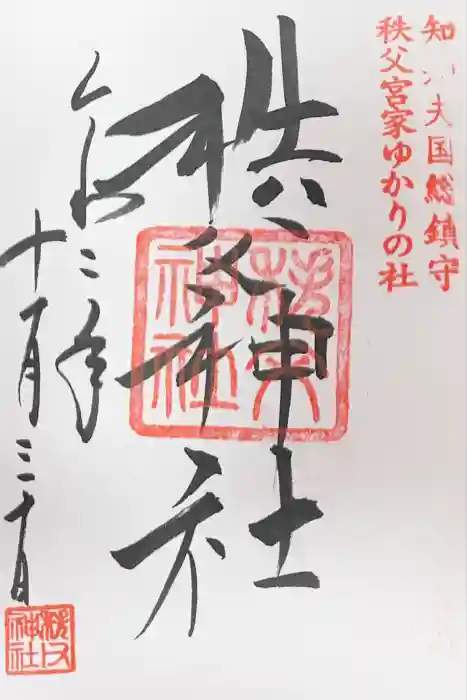 知知夫国総鎮守
秩父宮家ゆかりの社
秩父神社
秩父神社
令和二年
十月三十日
秩父神社